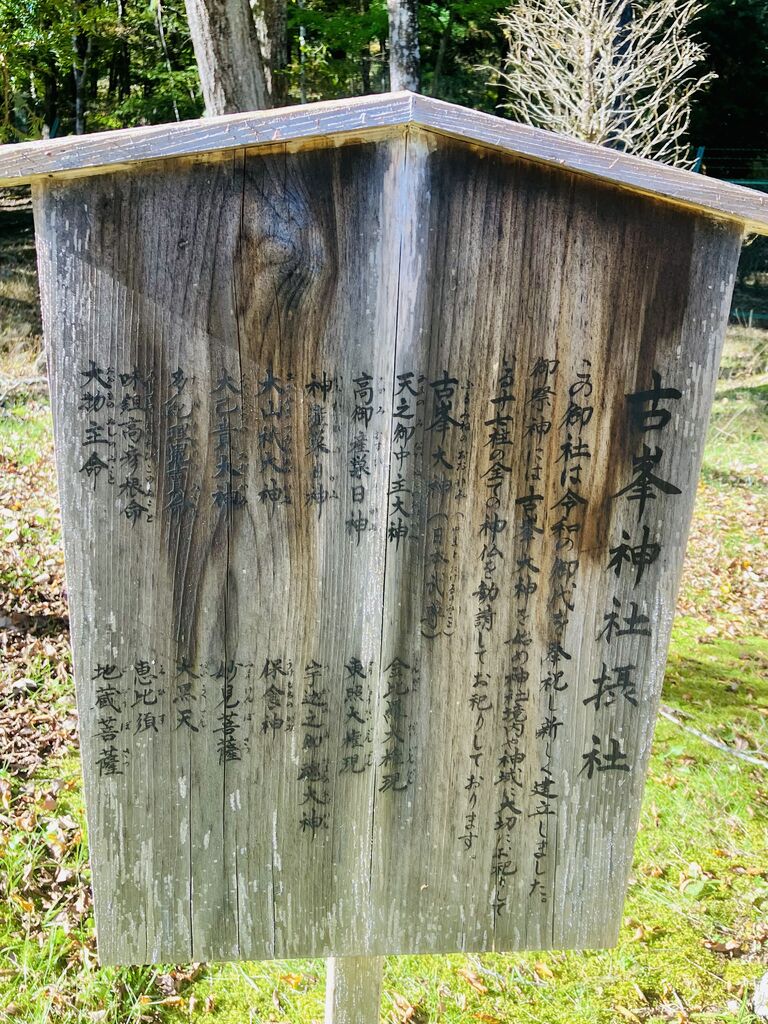 古峯神社摂社
この御社は令和の御代を奉祝し新しく建立しました。
御祭神には古峯大神を始め神社境内や神域に大切にお祀りして
いる十七柱の全ての神仏を勧請してお祀りしております。
古峯大神（日本武尊）
天之御中主大神
高御産巣日神
神産巣日神
大山祇大神
大己貴大神
多紀理毘売命
味耜高彦根命
大物主命
金比羅大権現
東照大権現
宇迦之御魂大神
保食神
妙見菩薩
大黒天
恵比須
地蔵菩薩